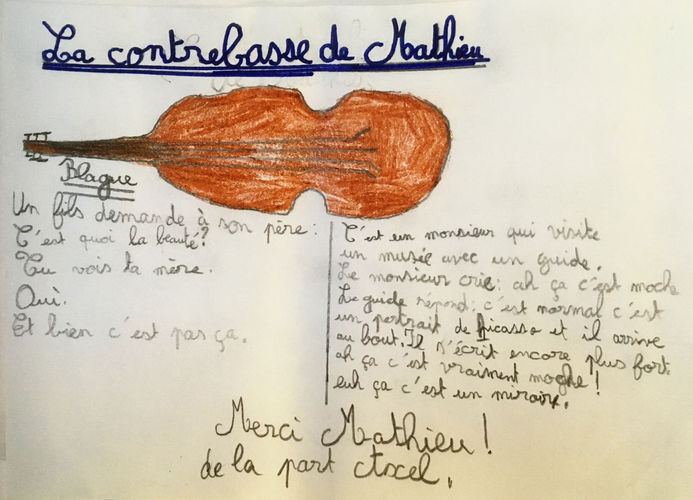 La contrebasse de Mathieu
Blague
Un fils demande à son père :
C'est quoi la beauté?
Tu vois ta mère.
Oui.
Et bien c'est pas ça.
C'est un monsieur qui visite
un musée avec un guide.
Le monsieur crie: ah ça c'est moche
Le guide répond: c'est normal c'est
un portrait de picasso et il arrive
au bout. Il s'écrit encore plus fort
ah ça c'est vraiment moche!
euh ça c'est un miroir.
Merci Mathieu!
de la part Axel.